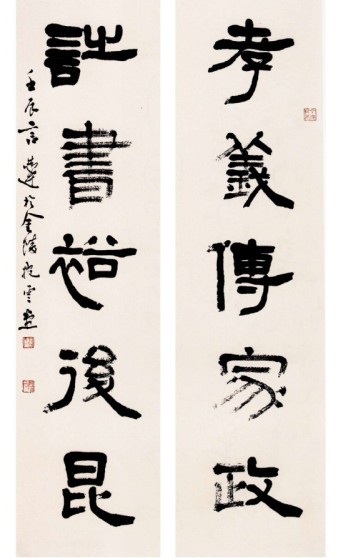 孝義傳家政
詩書裕後昆
壬辰言恭達於金陵抱雲堂